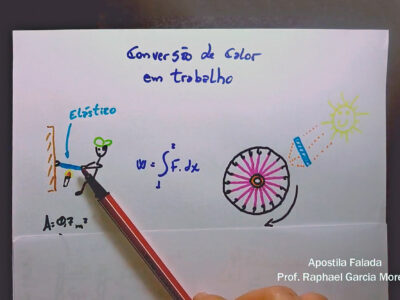 Conversão de Calor
em trabalho
Elástico
W = ∫₁² F⃗. dx
A = 0,7 m²
Apostila Falada
Prof. Raphael Garcia More